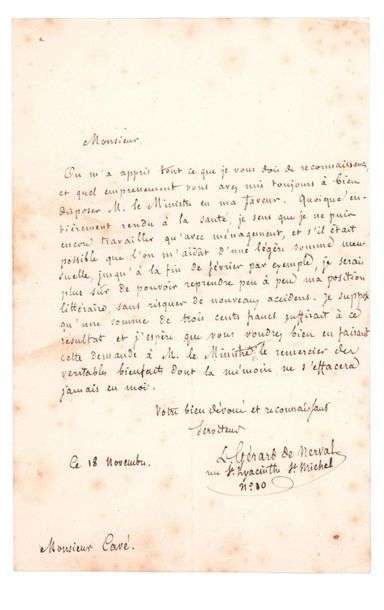 Monsieur
On m'a appris tout ce que je vous dois de reconnaissance,
et quel empressement vous avez mis toujours à bien
disposer M. le Ministre en ma faveur. Quoiqu'en-
tièrement rendu à la santé, je sens que je ne puis
encore travailler qu'avec ménagement, et s'il était
possible que l'on m'aidât d'une légère somme men-
suelle, jusqu'à la fin de février par exemple, je serais
plus sûr de pouvoir reprendre peu à peu ma position
littéraire, sans risquer de nouveaux accidens. Je suppose
qu'une somme de trois cents francs suffirait à ce
résultat et j'espère que vous voudrez bien en faisant
cette demande à M. le Ministre le remercier des
véritables bienfaits dont la mémoire ne s'effacera
jamais en moi.
Votre bien dévoué et reconnaissant
serviteur
Gérard de Nerval
rue St. hyacinthe St. Michel
n° 10
Ce 18 Novembre.
Monsieur Cavé.